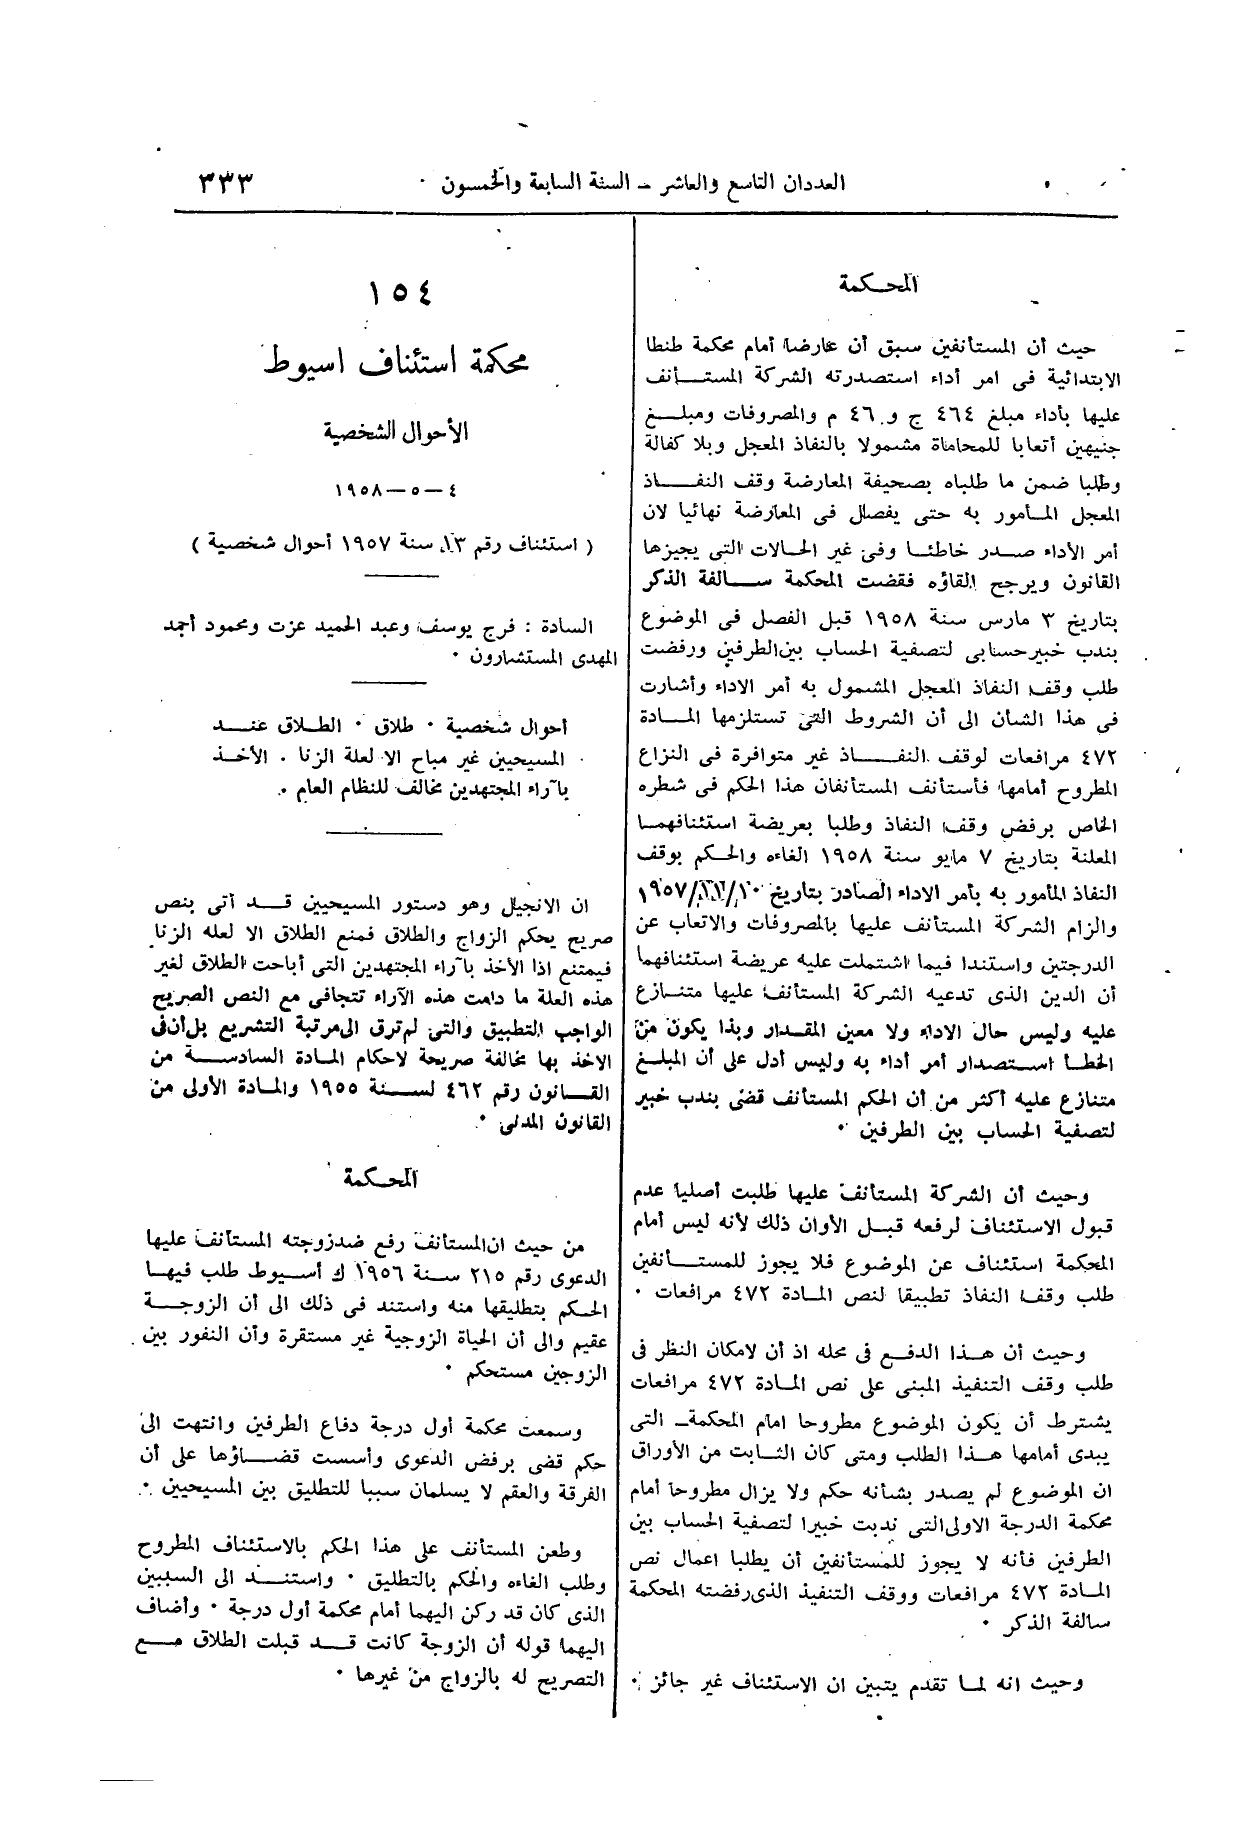 العددان التاسع والعاشر – السنة السابعة والخمسون ٠
٣٣٣
المحكمة
حيث أن المستأنفين سبق أن عارضا أمام محكمة طنطا
الابتدائية فى امر أداء استصدرته الشركة المستأنف
عليها بأداء مبلغ ٤٦٤ ج و ٤٦ م والمصروفات ومبلغ
جنيهين أتعابا للمحاماة مشمولا بالنفاذ المعجل وبلا كفالة
وطلبا ضمن ما طلباه بصحيفة المعارضة وقف النفاذ
المعجل المأمور به حتى يفصل فى المعارضة نهائيا لان
أمر الأداء صدر خاطئا وفى غير الحالات التى يجيزها
القانون ويرجح الغاؤه فقضت المحكمة سالفة الذكر
بتاريخ ٣ مارس سنة ١٩٥٨ قبل الفصل فى الموضوع
بندب خبير حسابى لتصفية الحساب بين الطرفين ورفضت
طلب وقف النفاذ المعجل المشمول به أمر الاداء وأشارت
فى هذا الشأن الى أن الشروط التى تستلزمها المادة
٤٧٢ مرافعات لوقف النفاذ غير متوافرة فى النزاع
المطروح أمامها فأستأنف المستأنفان هذا الحكم فى شطره
الخاص برفض وقف النفاذ وطلبا بعريضة استئنافهما
المعلنة بتاريخ ٧ مايو سنة ١٩٥٨ الغاءه والحكم بوقف
النفاذ المأمور به بأمر الاداء الصادر بتاريخ
والزام الشركة المستأنف عليها بالمصروفات والاتعاب عن
الدرجتين واستندا فيما اشتملت عليه عريضة استئنافهما
أن الدين الذى تدعيه الشركة المستأنف عليها متنازع
عليه وليس حال الاداء ولا معين المقدار وبذا يكون من
الخطأ استصدار أمر أداء به وليس أدل على أن المبلغ
متنازع عليه أكثر من أن الحكم المستأنف قضى بندب خبير
لتصفية الحساب بين الطرفين ٠
وحيث أن الشركة المستأنف عليها طلبت أصليا عدم
قبول الاستئناف لرفعه قبل الأوان ذلك لأنه ليس أمام
المحكمة استئناف عن الموضوع فلا يجوز للمستأنفين
طلب وقف النفاذ تطبيقا لنص المادة ٤٧٢ مرافعات ٠
وحيث أن هذا الدفع فى محله اذ أن لامكان النظر فى
طلب وقف التنفيذ المبنى على نص المادة ٤٧٢ مرافعات
يشترط أن يكون الموضوع مطروحا امام المحكمة التى
يبدى أمامها هذا الطلب ومتى كان الثابت من الأوراق
ان الموضوع لم يصدر بشأنه حكم ولا يزال مطروحا أمام
محكمة الدرجة الاولى التى ندبت خبيرا لتصفية الحساب بين
الطرفين فأنه لا يجوز للمستأنفين أن يطلبا اعمال نص
المادة ٤٧٢ مرافعات ووقف التنفيذ الذى رفضته المحكمة
سالفة الذكر ٠
وحيث انه لما تقدم يتبين ان الاستئناف غير جائز ٠
١٥٤
محكمة استئناف اسيوط
الأحوال الشخصية
٤ – ٥ – ١٩٥٨
( استئناف رقم ١٣ سنة ١٩٥٧ أحوال شخصية )
السادة : فرج يوسف وعبد الحميد عزت ومحمود أحمد
المهدى المستشارون ٠
أحوال شخصية ٠ طلاق ٠ الطلاق عند
المسيحيين غير مباح الا لعلة الزنا ٠ الأخذ
بآراء المجتهدين مخالف للنظام العام ٠
ان الانجيل وهو دستور المسيحيين قد أتى بنص
صريح يحكم الزواج والطلاق فمنع الطلاق الا لعله الزنا
فيمتنع اذا الأخذ بآراء المجتهدين التى أباحت الطلاق لغير
هذه العلة ما دامت هذه الآراء تتجافى مع النص الصريح
الواجب التطبيق والتى لم ترق الى مرتبة التشريع بل أن فى
الاخذ بها مخالفة صريحة لاحكام المادة السادسة من
القانون رقم ٤٦٢ لسنة ١٩٥٥ والمادة الأولى من
القانون المدنى ٠
المحكمة
من حيث ان المستأنف رفع ضد زوجته المستأنف عليها
الدعوى رقم ٢١٥ سنة ١٩٥٦ ك أسيوط طلب فيها
الحكم بتطليقها منه واستند فى ذلك الى أن الزوجة
عقيم والى أن الحياة الزوجية غير مستقرة وأن النفور بين
الزوجين مستحكم ٠
وسمعت محكمة أول درجة دفاع الطرفين وانتهت الى
حكم قضى برفض الدعوى وأسست قضاؤها على أن
الفرقة والعقم لا يسلمان سببا للتطليق بين المسيحيين ٠
وطعن المستأنف على هذا الحكم بالاستئناف المطروح
وطلب الغاءه والحكم بالتطليق ٠ واستند الى السببين
الذى كان قد ركن اليهما أمام محكمة أول درجة ٠ وأضاف
اليهما قوله أن الزوجة كانت قد قبلت الطلاق مع
التصريح له بالزواج من غيرها ٠